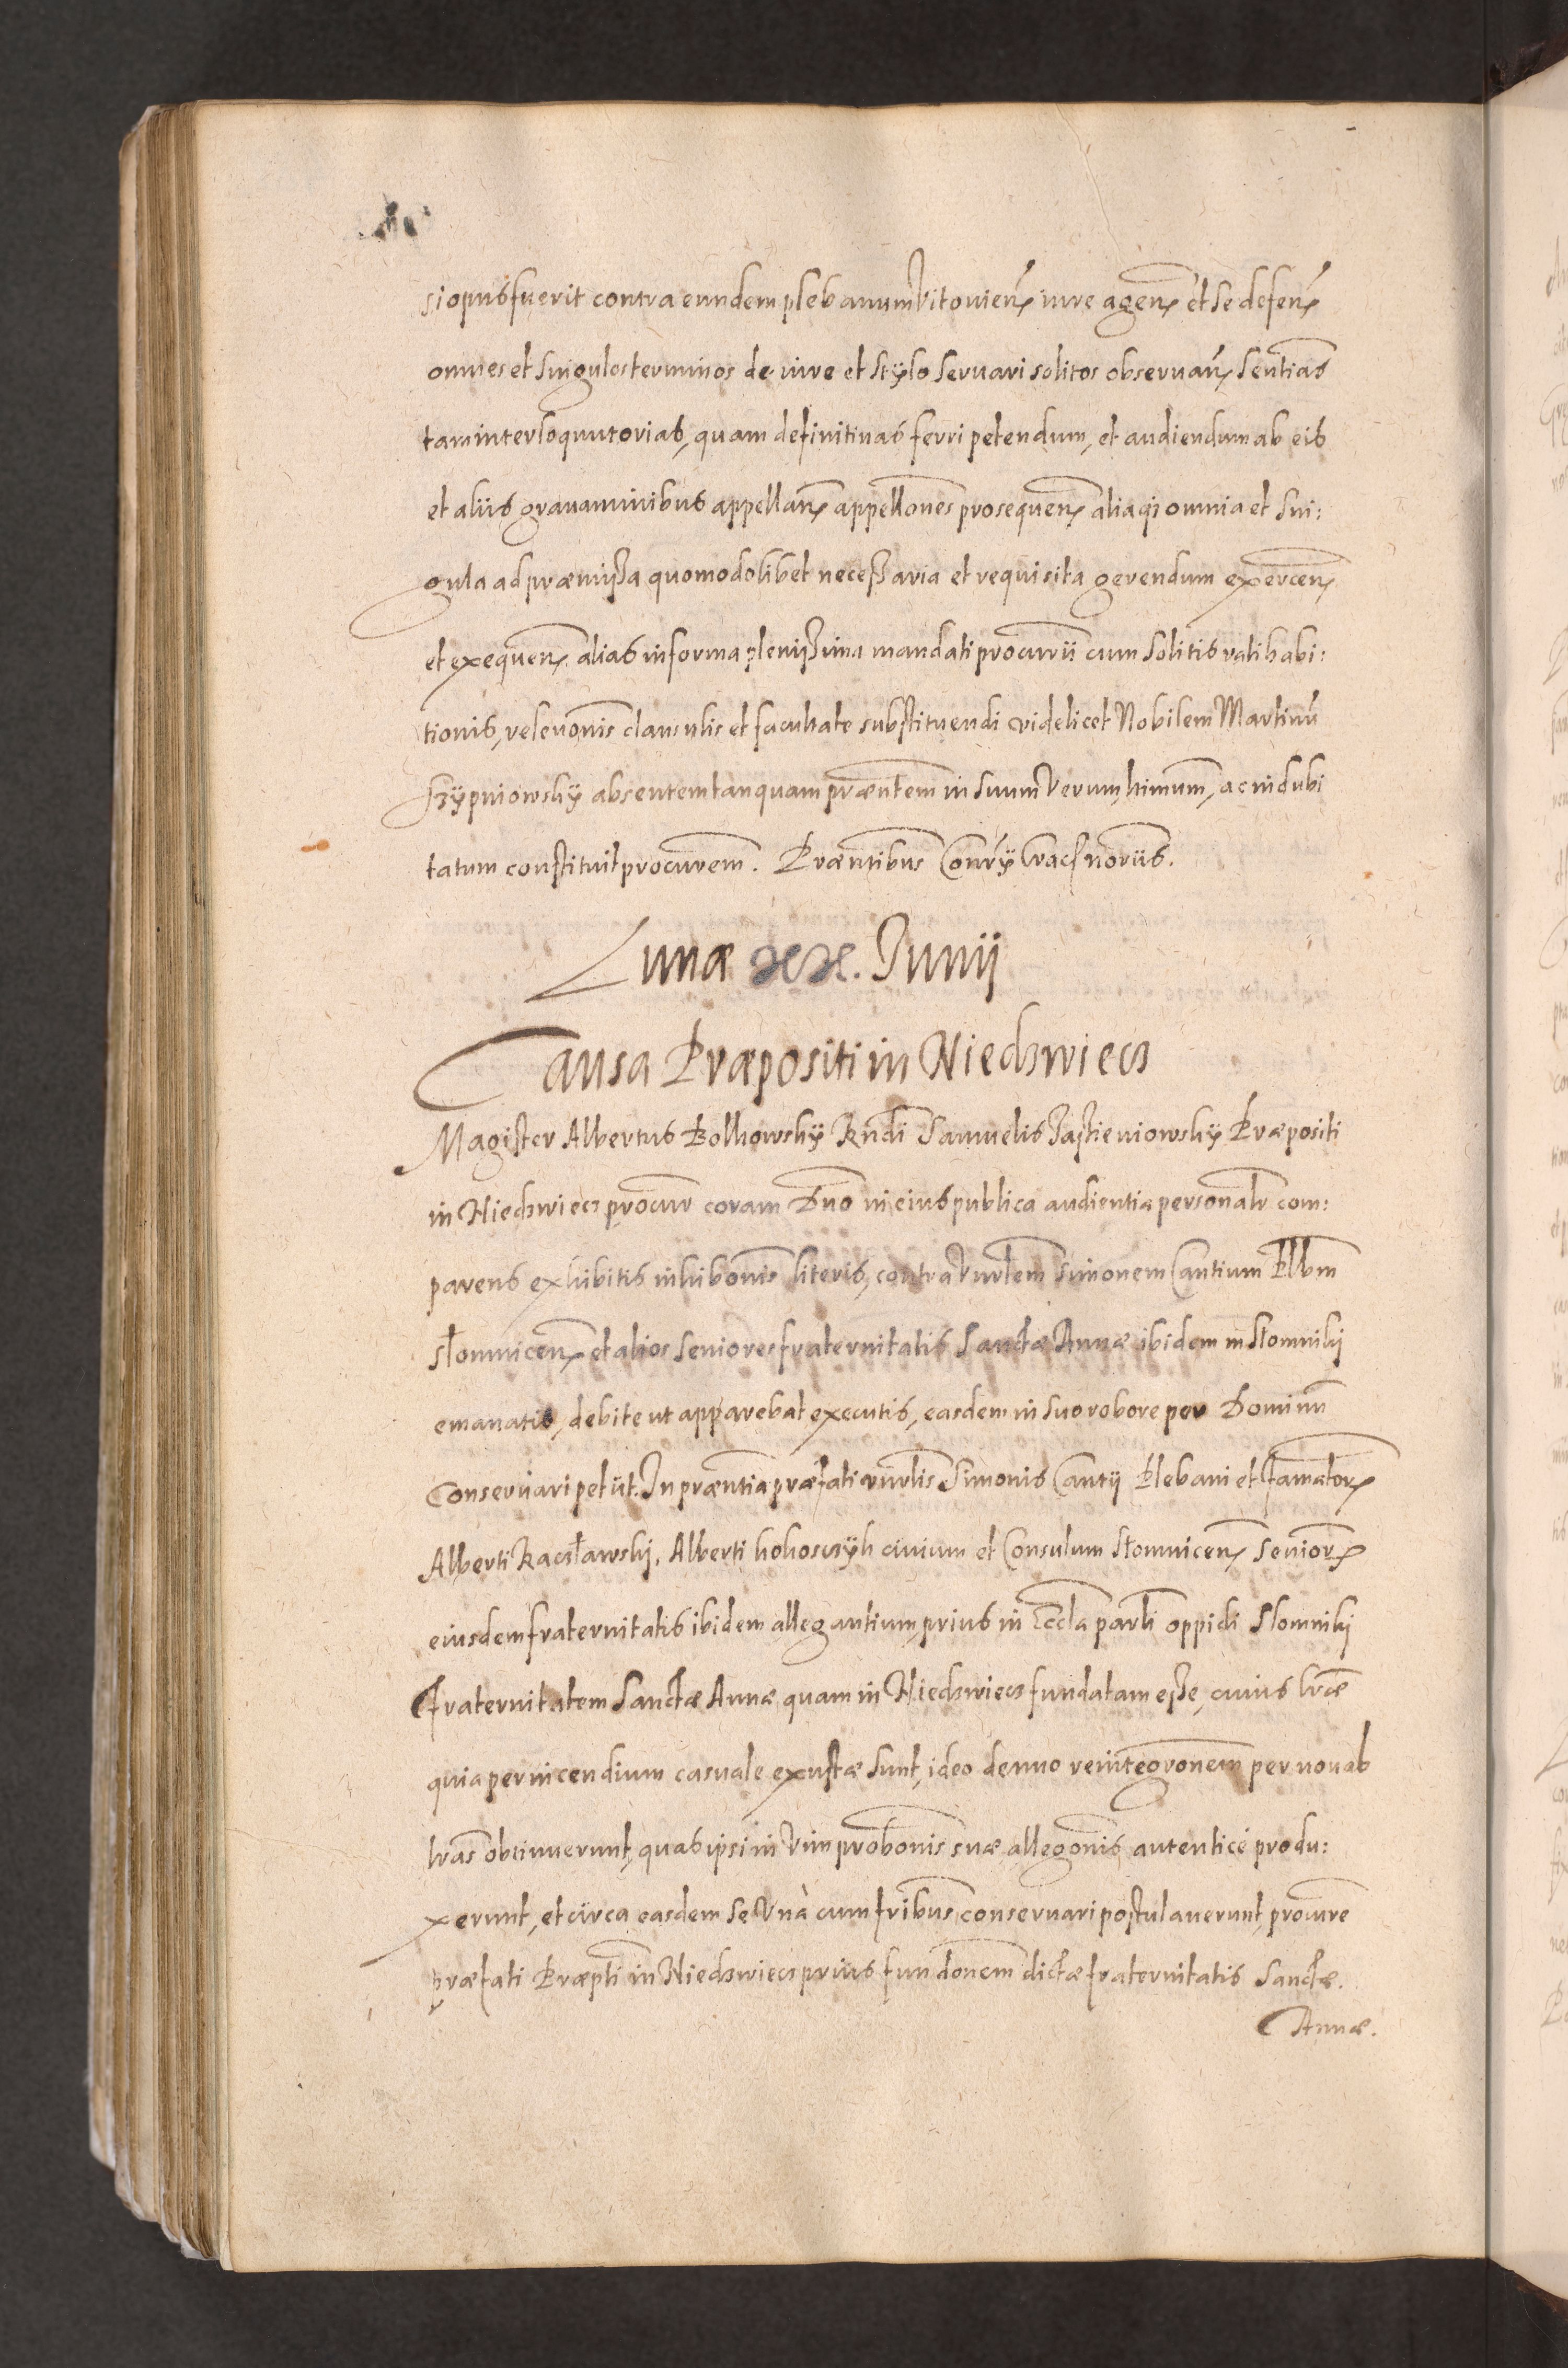 si opus fuerit contra eundem plebanum Vitouien̄ iure agen̄ et se defen̄
omnes et singulos terminos de iure et stylo servari solitos observan̄ sentias
tam interloquutorias, quam definitivas ferri petendum, et audiendum ab eis
et aliis gravaminibus appellan̄ appellones prosequen̄ aliaq; omnia et sin:
gula ad præmissa quomodolibet necessaria et requisita gerendum exercen̄
et exequen̄ alias in forma plenissima mandati procurii cum solitis ratihabi:
tionis, relevonis clausulis et facultate substituendi videlicet Nobilem Martinū
absentem tanquam præntem in suum verum, ltimum, ac indubi
tatum constituit procurem. Præntibus Conr̄y Crac̄ noriis.
Lunæ xx. Junij
Causa Præpositi in Niedzwiecz
Magister Albertus Bolkowsky Rndi Samuelis Jastieniowsky Præpositi
in Niedzwiecz procur coram Dno in eius publica audientia personalr com:
parens exhibitis inhibonis literis, contra Vnrlem Simonem Cantium Plbm
słomnicen̄ et alios seniores fraternitatis Sanctæ Annæ ibidem in słomniki
emanatis, debite ut apparebat executis, easdem in suo robore per Dominū
Conservari petiit. In præntia præfati vnrlis Simonis Cantij Plebani et famator̄
Alberti Kaczławski, Alberti kokoszyk civium et Consulum Słomnicen̄ Senior̄
eiusdem fraternitatis ibidem allegantium, prius in Eccla parli oppidi Slomniki
fraternitatem Sanctæ Annæ quam in Niedzwiecz fundatam esse, cuius lræ
quia per incendium casuale exustæ sunt, ideo denuo reintegronem per novas
lras obtinuerunt, quas ipsi in vim probonis suæ allegonis autenticè produ:
xerunt, et circa easdem se unà cum fribus conservari postulaverunt, procure
præfati Præpti in Niedzwiecz prius fundonem dictæ fraternitatis Sanctæ.
Annæ.